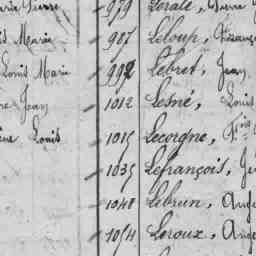 Marie Pierre 979 Lerale, Pierre
is Marie 987 Leloup,
Louis Marie 992 Lebret, Jean
re Jean 1012 Lesné, Louis
ène Louis 1015 Lecorgne, Fçois
1035 Lefrançois, Je
1048 Lebrun, Ange
1054 Leroux, Ange